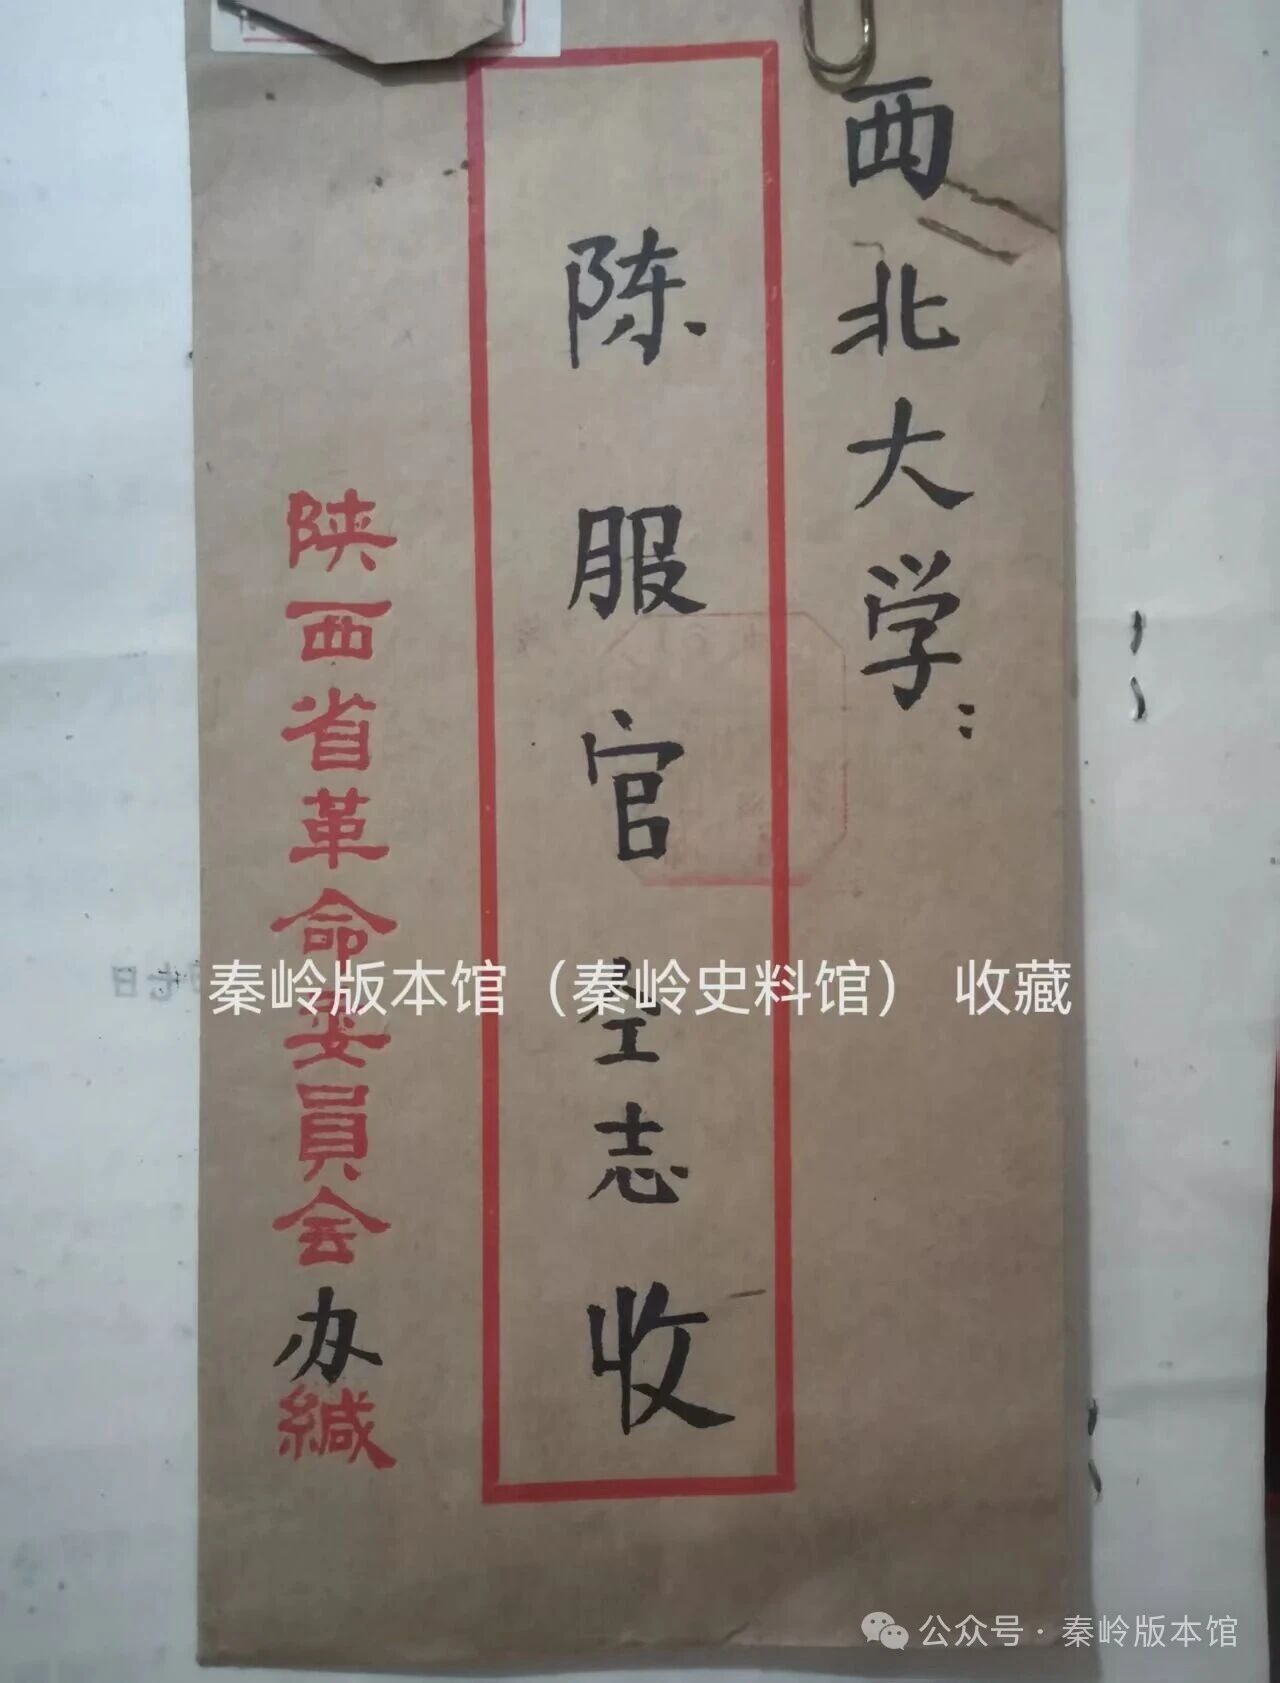 西北大学：
陈服官仝志收
陕西省革命委员会办缄
秦岭版本馆（秦岭史料馆） 收藏
公众号·秦岭版本馆